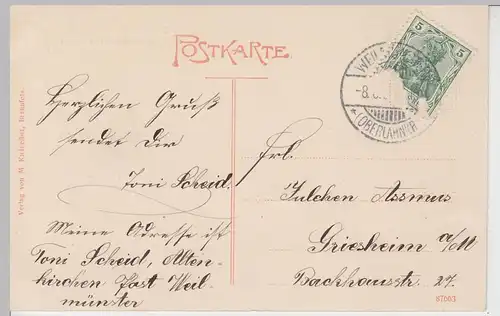 POSTKARTE
Herzlichen Gruß
sendet Dir
Toni Scheid.
Meine Adresse ist
Toni Scheid, Alten-
kirchen Post Weil-
münster
Frl.
Julchen Assmus
Griesheim a/M
Backhausstr. 27.
5 5
(OBERLAHNKR
-8.
Verlag von M
87003